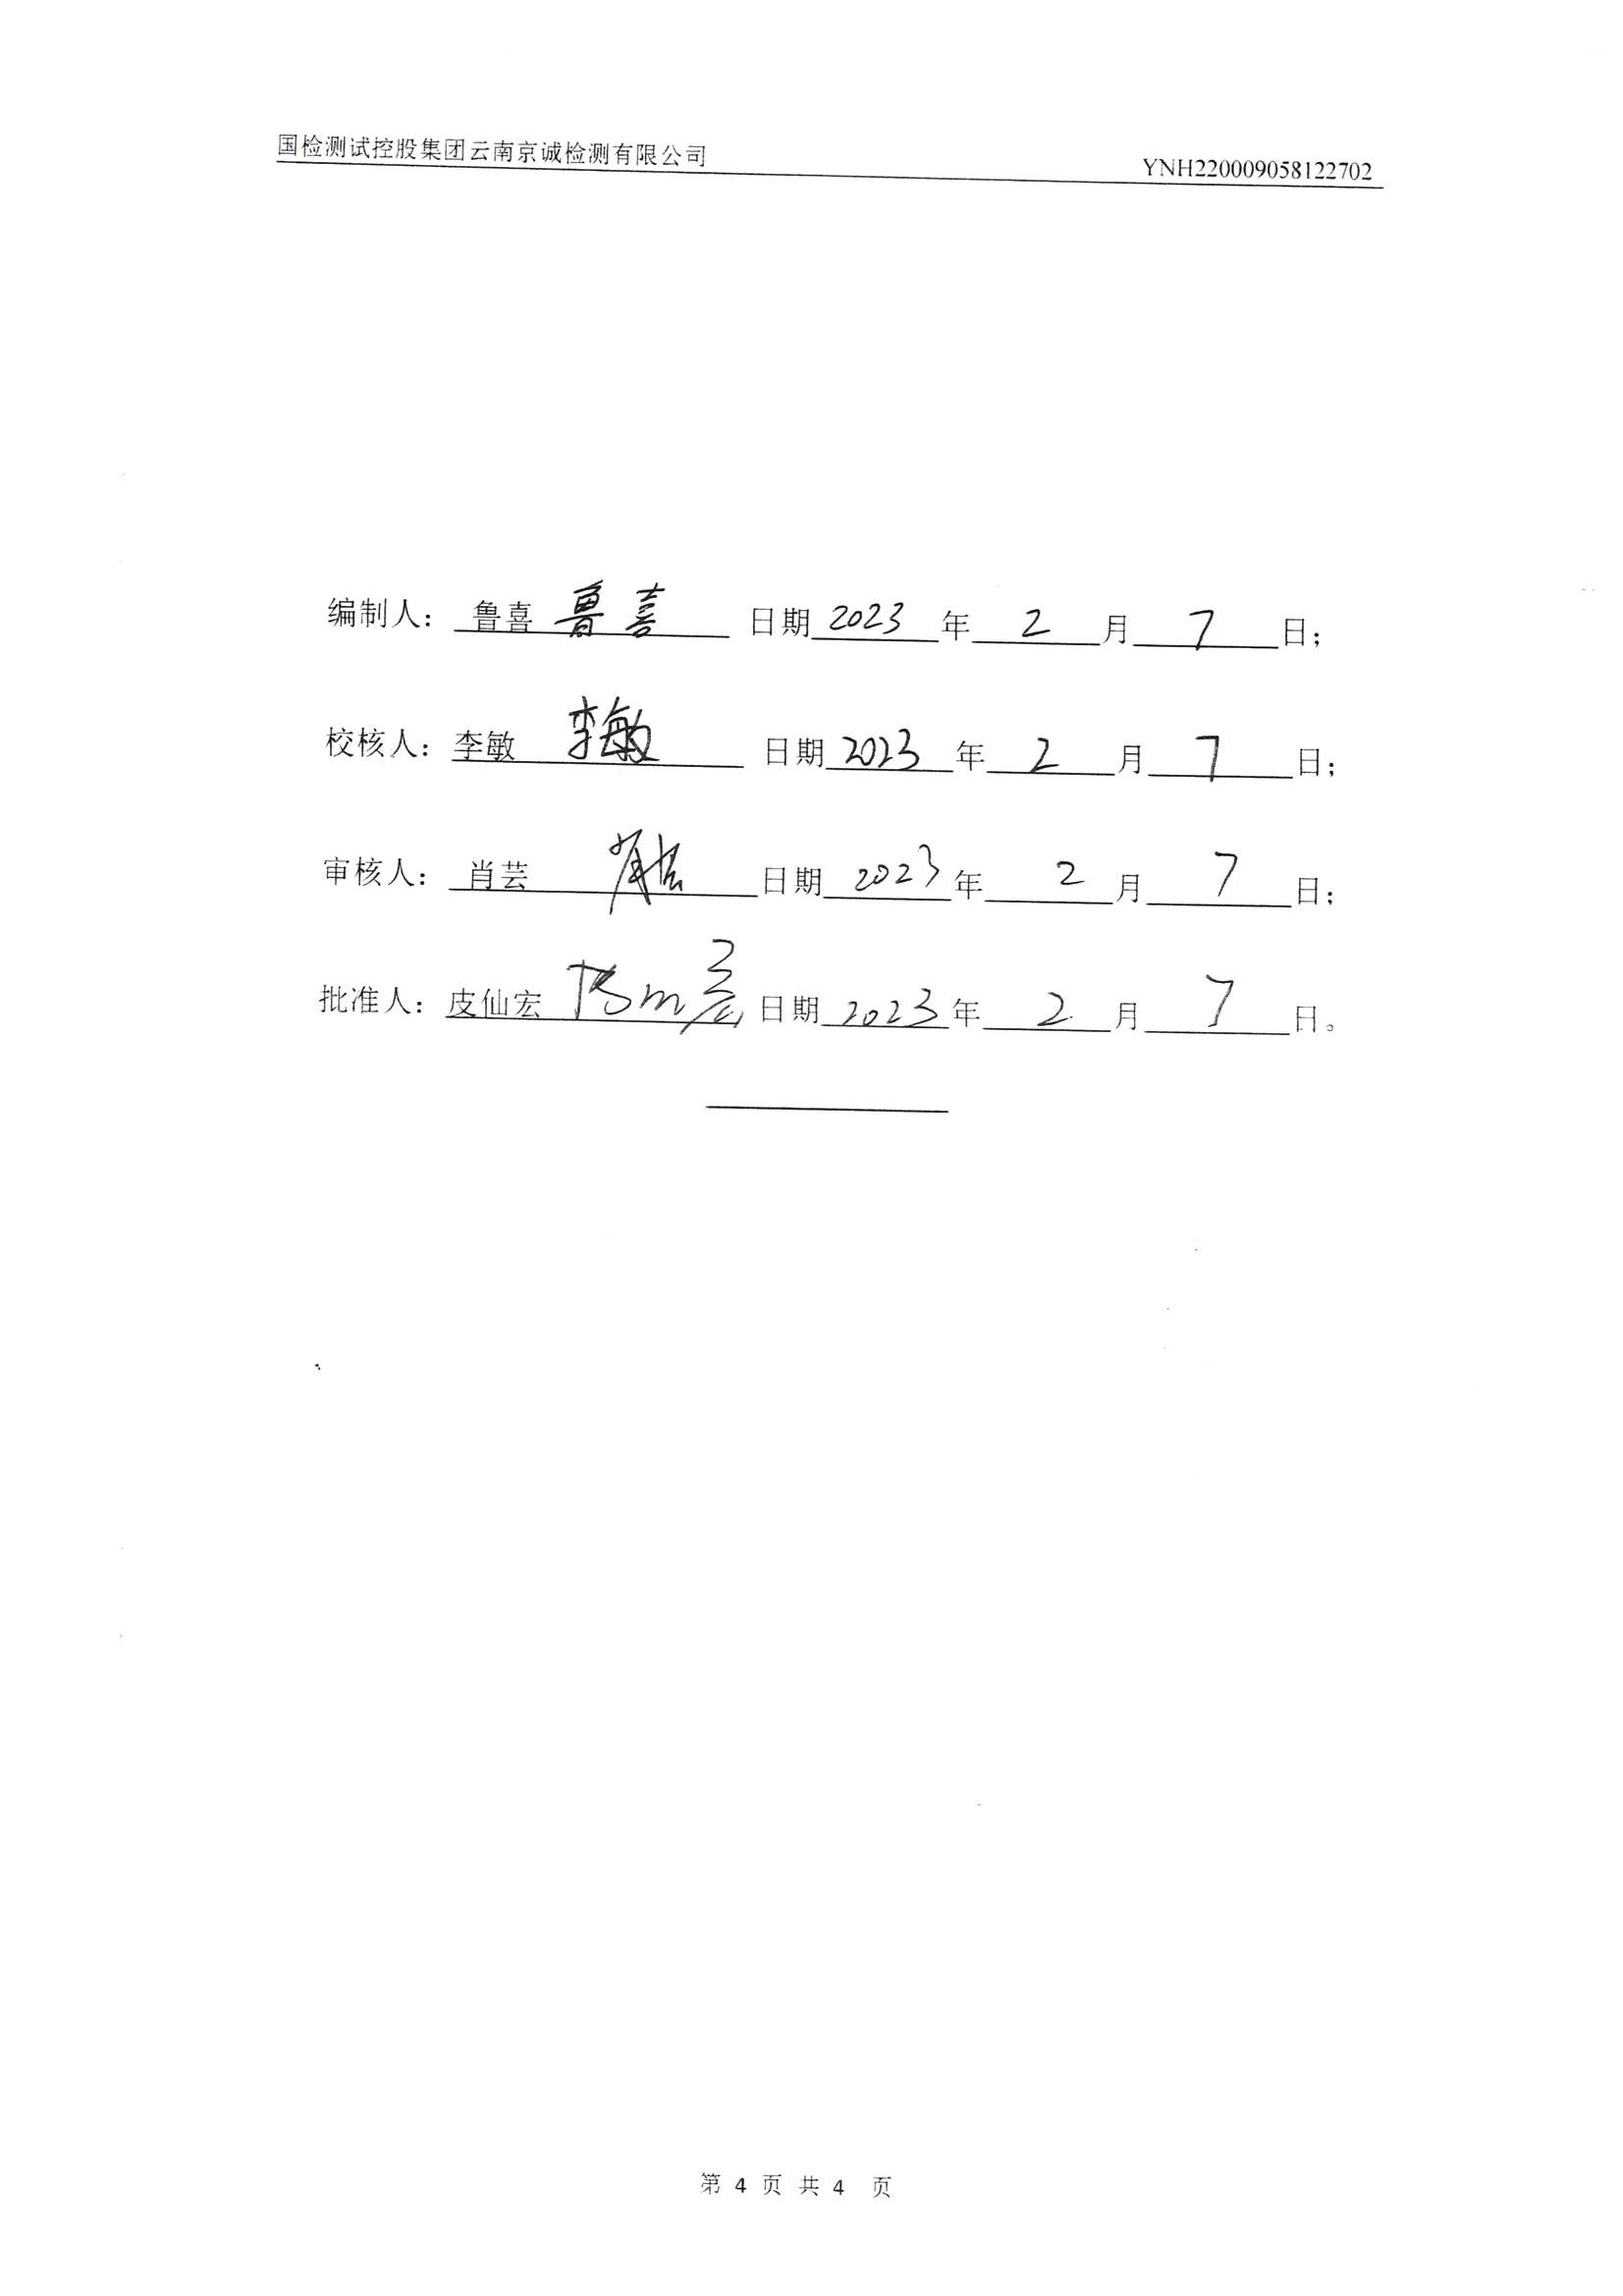 国检测试控股集团云南京诚检测有限公司 YNH220009058122702
编制人： 鲁喜 鲁喜 日期 2023 年 2 月 7 日；
校核人：李敏 李敏 日期 2023 年 2 月 7 日；
审核人： 肖芸 肖芸 日期 2023 年 2 月 7 日；
批准人：皮仙宏 日期 2023 年 2 月 7 日。
第 4 页 共 4 页